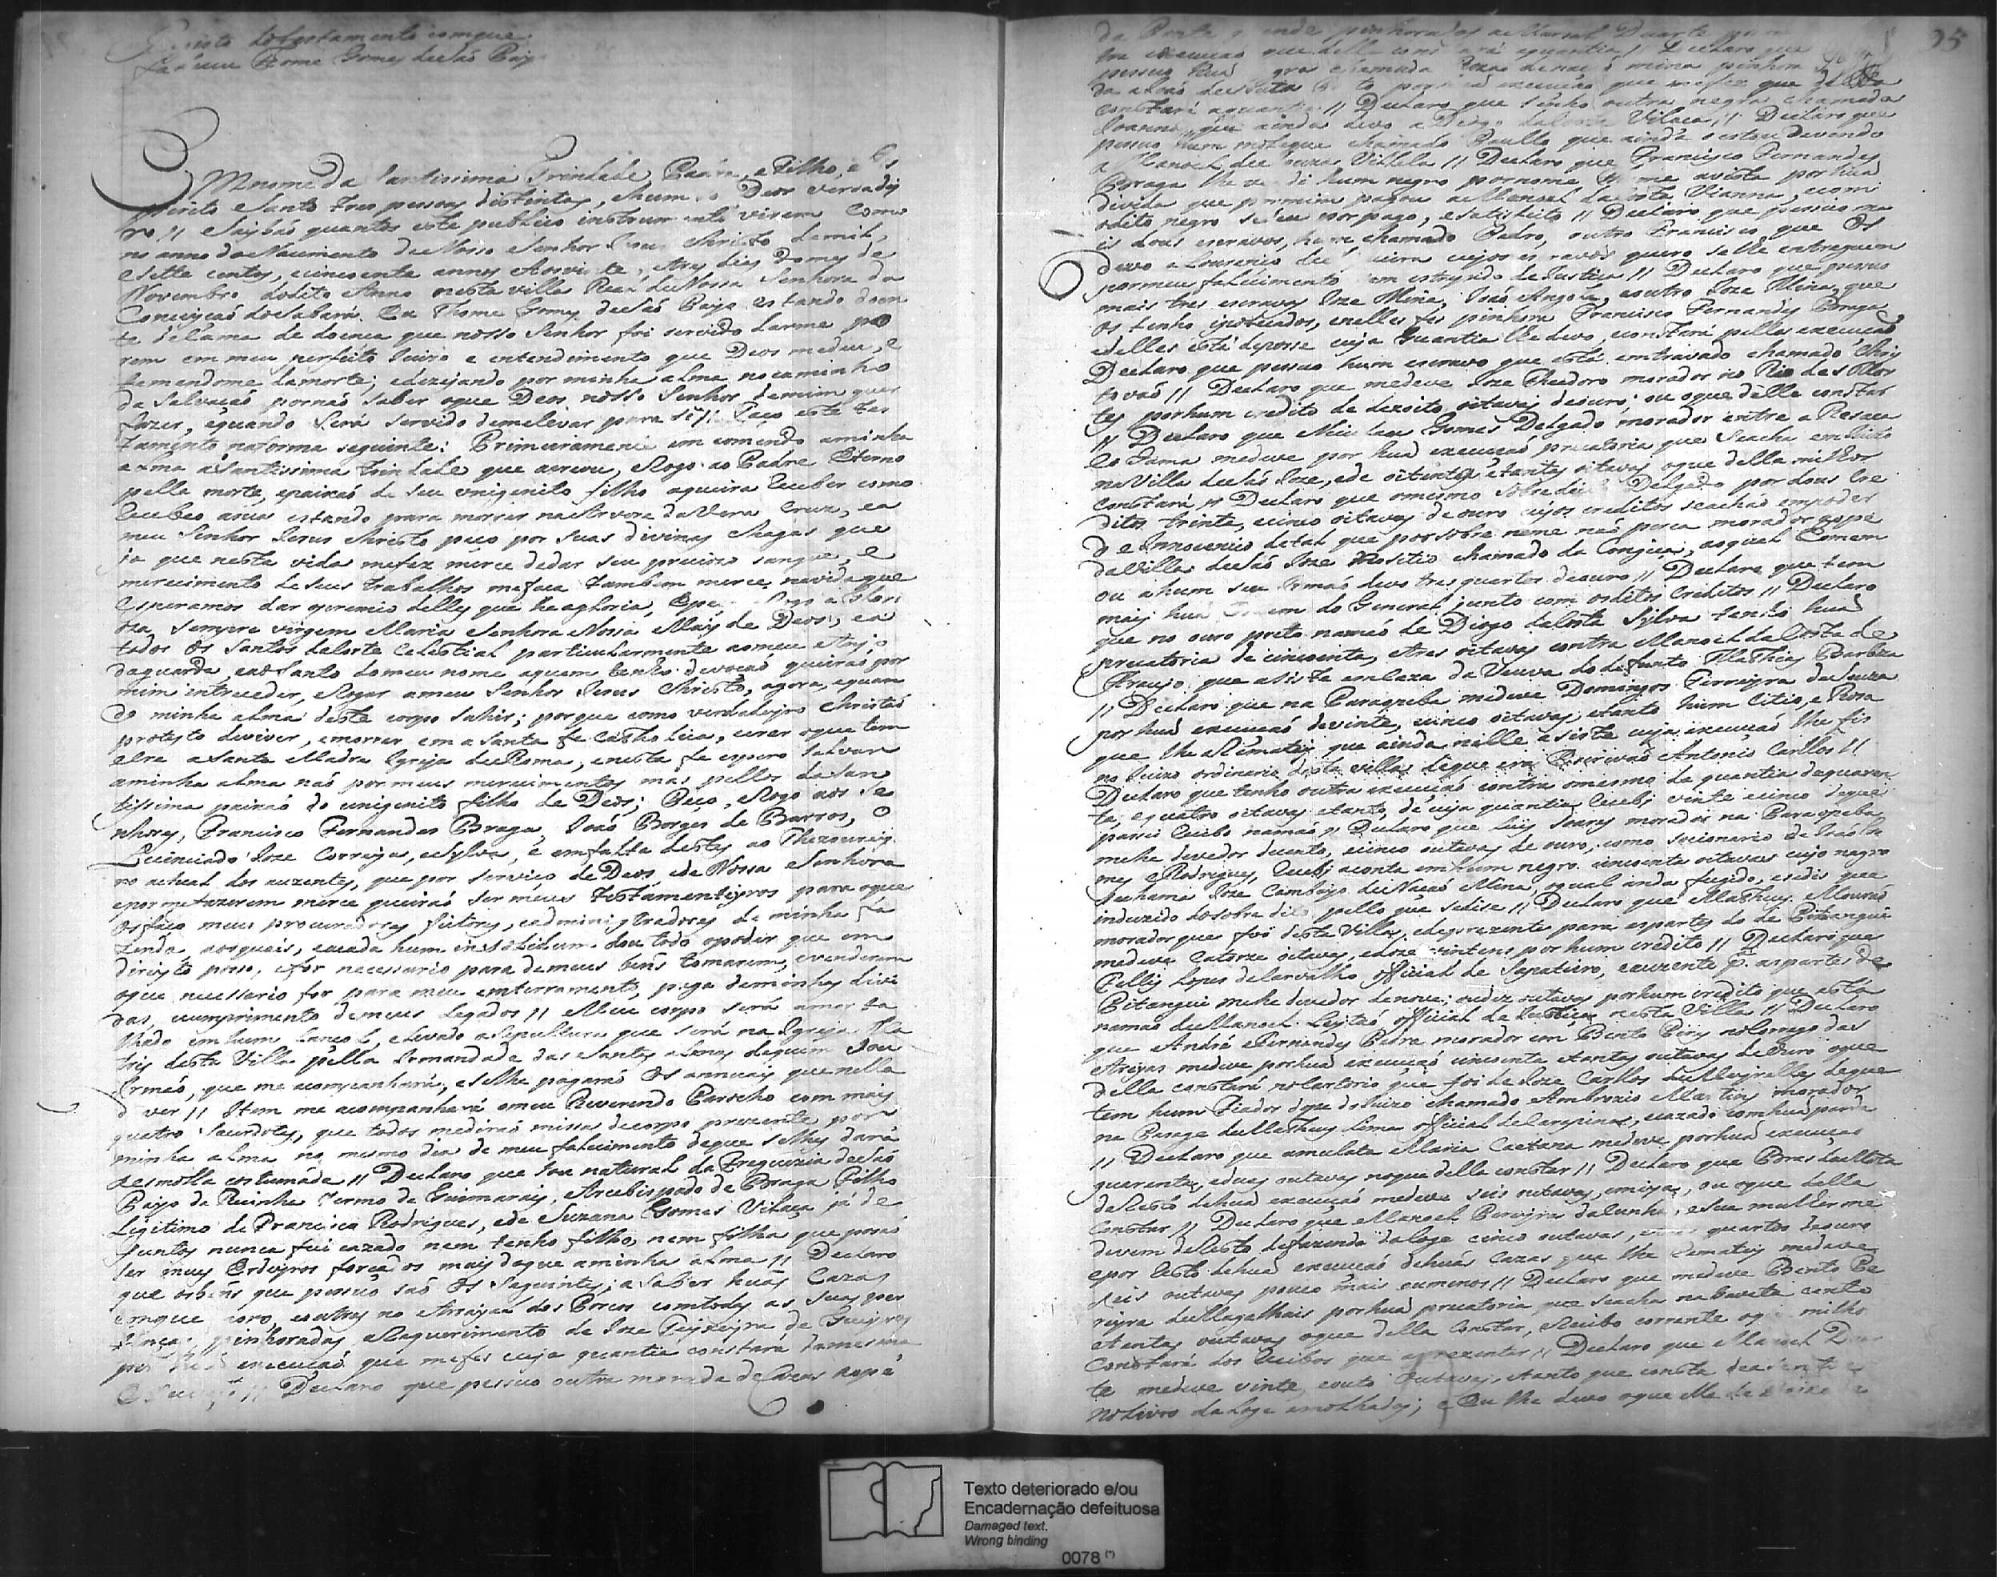 Registo do testamento com que
faleceu Thome Gomes de São Payo
Em nome da Santissima Trindade Padre, e Filho, e Es
pirito Santo tres pessoas distintas, e hum só Deos verdadei
ro // Saybaõ quantos este publico instrumento virem como
no anno do Nacimento de Nosso Senhor Jesus Christo de mil,
e sette centos, e sincoente annos aos vinte, e tres dias do mes de
Novembro do dito Anno nesta villa Real de Nossa Senhora da
Conceiçaõ do Sabará. Eu Thome Gomes de São Payo estando doen
te de cama de doença que nosso Senhor foi servido darme po
rem em meu perfeito Juizo e entendimento que Deos me deu, e
temendome da morte; e dezejando por minha alma no caminho
da salvaçaõ por naõ saber o que Deos nosso Senhor de mim quer
fazer, e quando será servido de me levar para si // Faço este tes
tamento na forma seguinte: Primeiramente em comendo a minha
alma a Santissima Trindade que a creou, e Rogo ao Padre Eterno
pella morte, e paixaõ de seu unigenito filho a queira receber como
recebeo a sua estando para morrer na Arvore da Vera Cruz, e a
meu Senhor Jesus Christo peço por suas divinas Chagas que
ja que nesta vida me fez merce de dar seu preciozo sangue, e
merecimento de seus trabalhos me faça tambem merce na vida que
esperamos dar o premio delles que he a gloria, e peço e Rogo a Glori
oza sempre virgem Maria Senhora Nossa May de Deos, e a
todos os Santos da Corte Celestial particularmente ao meu Anjo
da guarda, e ao Santo do meu nome a quem tenho devoçaõ queiraõ por
mim interceder, e Rogar a meu Senhor Jesus Christo, agora, e quan
do minha alma deste corpo sahir; porque como verdadeyro Christaõ
protesto de viver, e morrer em a Santa fe Catholica, e crer o que tem
e cre a Santa Madre Igreja de Roma, e nesta fe espero salvar
a minha alma naõ por meus merecimentos mas pellos da san
tissima paixaõ do unigenito filho de Deos; Peço, e Rogo aos Se
nhores, Francisco Fernandes Braga, Joaõ Borges de Barros, o
Lecenciado Joze Correya, e Sylva, e em falta destes ao Thezourey
ro actual dos auzentes, que por serviço de Deos e de Nossa Senhora
e por me fazerem merce queiraõ ser meus testamenteyros para o que
os faço meus procuradores feitores, e administradores de minha fa
zenda aos quais, e a cada hum in solidum dou todo o poder que em
direito posso, e for necessario para de meus bens tomarem, e venderem
o que necessario for para meu enterramento, paga de minhas divi
das, e cumprimento de meus Legados // Meu corpo será amorta
lhado em hum lançol, e levado a sepultura que será na Igreja Ma
tris desta Villa pella Irmandade das Santas almas de quem sou
Irmaõ, que me acompanhará, e se lhe pagaraõ os annuais que nella
dever // Item me acompanhará o meu Reverendo Parocho com mais
quatro Sacerdotes, que todos me diraõ missa de corpo prezente por
minha alma no mesmo dia de meu falecimento de que se lhes dará
a esmolla costumada // Declaro que sou natural da Freguezia de São
Payo de Termo de Guimarais, Arcebispado de Braga Filho
Legitimo de Francisco Rodrigues, e de Suzana Gomes Vilaça já de
funtos nunca fui cazado nem tenho filho, nem filha que possaõ
ser meus Erdeyros forçados mais do que a minha alma // Declaro
que os bens que possuo saõ os seguintes; a saber huãs Cazas
em que moro, e outras no Arrayal dos Corvos com todas as suas per
tenças pinhoradas a Requerimento de Joze Teyxeyra de Queyros
por huã execuçaõ que me fes cuja quantia constará da mesma
Execuçaõ // Declaro que possuo outra morada de Cazas ao pé
95
da Ponte pinhorados a Manoel Duarte
execuçaõ que della constará a quantia // Declaro que
possuo huã negra chamada Roza de naçaõ mina pinhora
execuçaõ que me fez que della
constará a quantia // Declaro que tenho outra negra chamada
Joanna que ainda devo a Diogo Vilaça // Declaro que
possuo hum moleque chamado Paullo que ainda o estou devendo
a Manoel de Souza Villela // Declaro que Francisco Fernandes
Braga lhe vendi hum negro por nome por huã
divida que por mim pagou a Manoel da Costa Vianna, e com
o dito negro se deu por pago, e satisfeito // Declaro que possuo ma
is dous escravos, hum chamado Pedro, outro Francisco que os
devo a Lourenço de cujos escravos quero se lhe entreguem
por meu falecimento sem estrepido de Justiça // Declaro que possuo
mais tres escravos Joze Mina, Joaõ Angola, e outro Joze Mina, que
os tenho ipotecados, e nelles fes pinhora Francisco Fernandes Braga
e delles está de posse cuja quantia lhe devo, constará pellas execuçoẽs
Declaro que possuo hum escravo que está entravado chamado Chris
tovaõ // Declaro que me deve Joze Theodoro morador no Rio das Mor
tes por hum credito de dezoito oitavas de ouro; ou o que delle constar
// Declaro que Nicolau Gomes Delgado morador entre a Resaca
e o Gama me deve por huã execuçaõ precatoria que se acha em Juizo
na Villa de São Joze, e de oitenta e tantas oitavas o que della milhor
constará // Declaro que o mesmo sobredito Delgado por dous cre
ditos trinta, e cinco oitavas de ouro cujos creditos se achaõ em poder
de Innocencio de tal que por sobre nome naõ perca morador ao pé
da Villa de São Joze no sitio chamado da Congica, ao qual
ou a hum seu Irmaõ devo tres quartos de ouro // Declaro que tem
mais huã ordem do General junto com os ditos Creditos // Declaro
que no ouro preto na maõ de Diogo da Costa Sylva tenho huã
precatoria de cincoenta, e tres oitavas contra Manoel da Costa de
Araujo que asiste em caza da Veuva do defunto Mathias Barboza
// Declaro que na Paraopeba me deve Domingos Ferreyra de Souza
por huã execuçaõ de vinte, e cinco oitavas, e tanto hum citio, e Rosa
que lhe aRematey que ainda nelle asiste cuja execuçaõ lhe fis
no Juizo ordinario desta villa de que era Escrivaõ Antonio Carllos //
Declaro que tenho outra execuçaõ contra o mesmo da quantia de quaren
ta, e quatro oitavas e tanto, de cuja quantia recebi vinte e cinco de que
passei recibo na maõ // Declaro que Luis Soares morador na Paraopeba
me he devedor de cento, e cinco oitavas de ouro, como cecionario de Joaõ Go
mes Rodrigues, recebi a conta em hum negro cincoenta oitavas cujo negro
se chama Joze Cambayo de Naçaõ Mina, o qual anda fugido, e se dis que
induzido do sobre dito pello que se disse // Declaro que Matheus Mouraõ
morador que foi desta Villa, e de prezente para as partes de Pitangui
me deve catorze oitavas, e doze vintens por hum credito // Declaro que
Fellis Lopes de Carvalho official de Sapateiro, e auzente p.ª as partes de
Pitangui me he devedor de nove; ou dez outavas por hum credito que está
na maõ de Manoel Leytaõ official de Justiça nesta Villa // Declaro
que André Fernandes Pedra morador em Bento Pires no Corrego das
Areyas me deve por huã execuçaõ cincoenta e tantas outavas de ouro o que
della constará no Cartorio que foi de Joze Carlos de Meyrelles de que
tem hum Fiador de Juizo chamado Ambrozio Martins morador
na Passage de Matheus Lima official de Carapina, e cazado com huã parda
// Declaro que a mulata Maria Caetana me deve por huã execuçaõ
quarenta, e duas outavas no que della constar // Declaro que Bras da Mota
de Resto de huã execuçaõ me deve seis outavas, e meya, ou o que della
constar // Declaro que Manoel Pereyra da Cunha, e sua mulher me
devem de Resto de fazenda da loje cinco outavas, quartos de ouro
e por resto de huã execuçaõ de huãs Cazas que lhe Rematey me deve
seis outavas pouco mais ou menos // Declaro que me deve Bento Pe
reyra de Magalhais por huã precatoria que se acha cento
e tantas outavas o que della constar, e Recibo corrente o que milhor
constará dos recibos que aprezentar // Declaro que Manoel Duar
te me deve vinte, e outo outavas, e tanto que consta
no Livro da Loje e molhados; e Eu lhe devo o que elle
Texto deteriorado e/ou
Encadernação defeituosa
Damaged text.
Wrong binding
0078 (*)